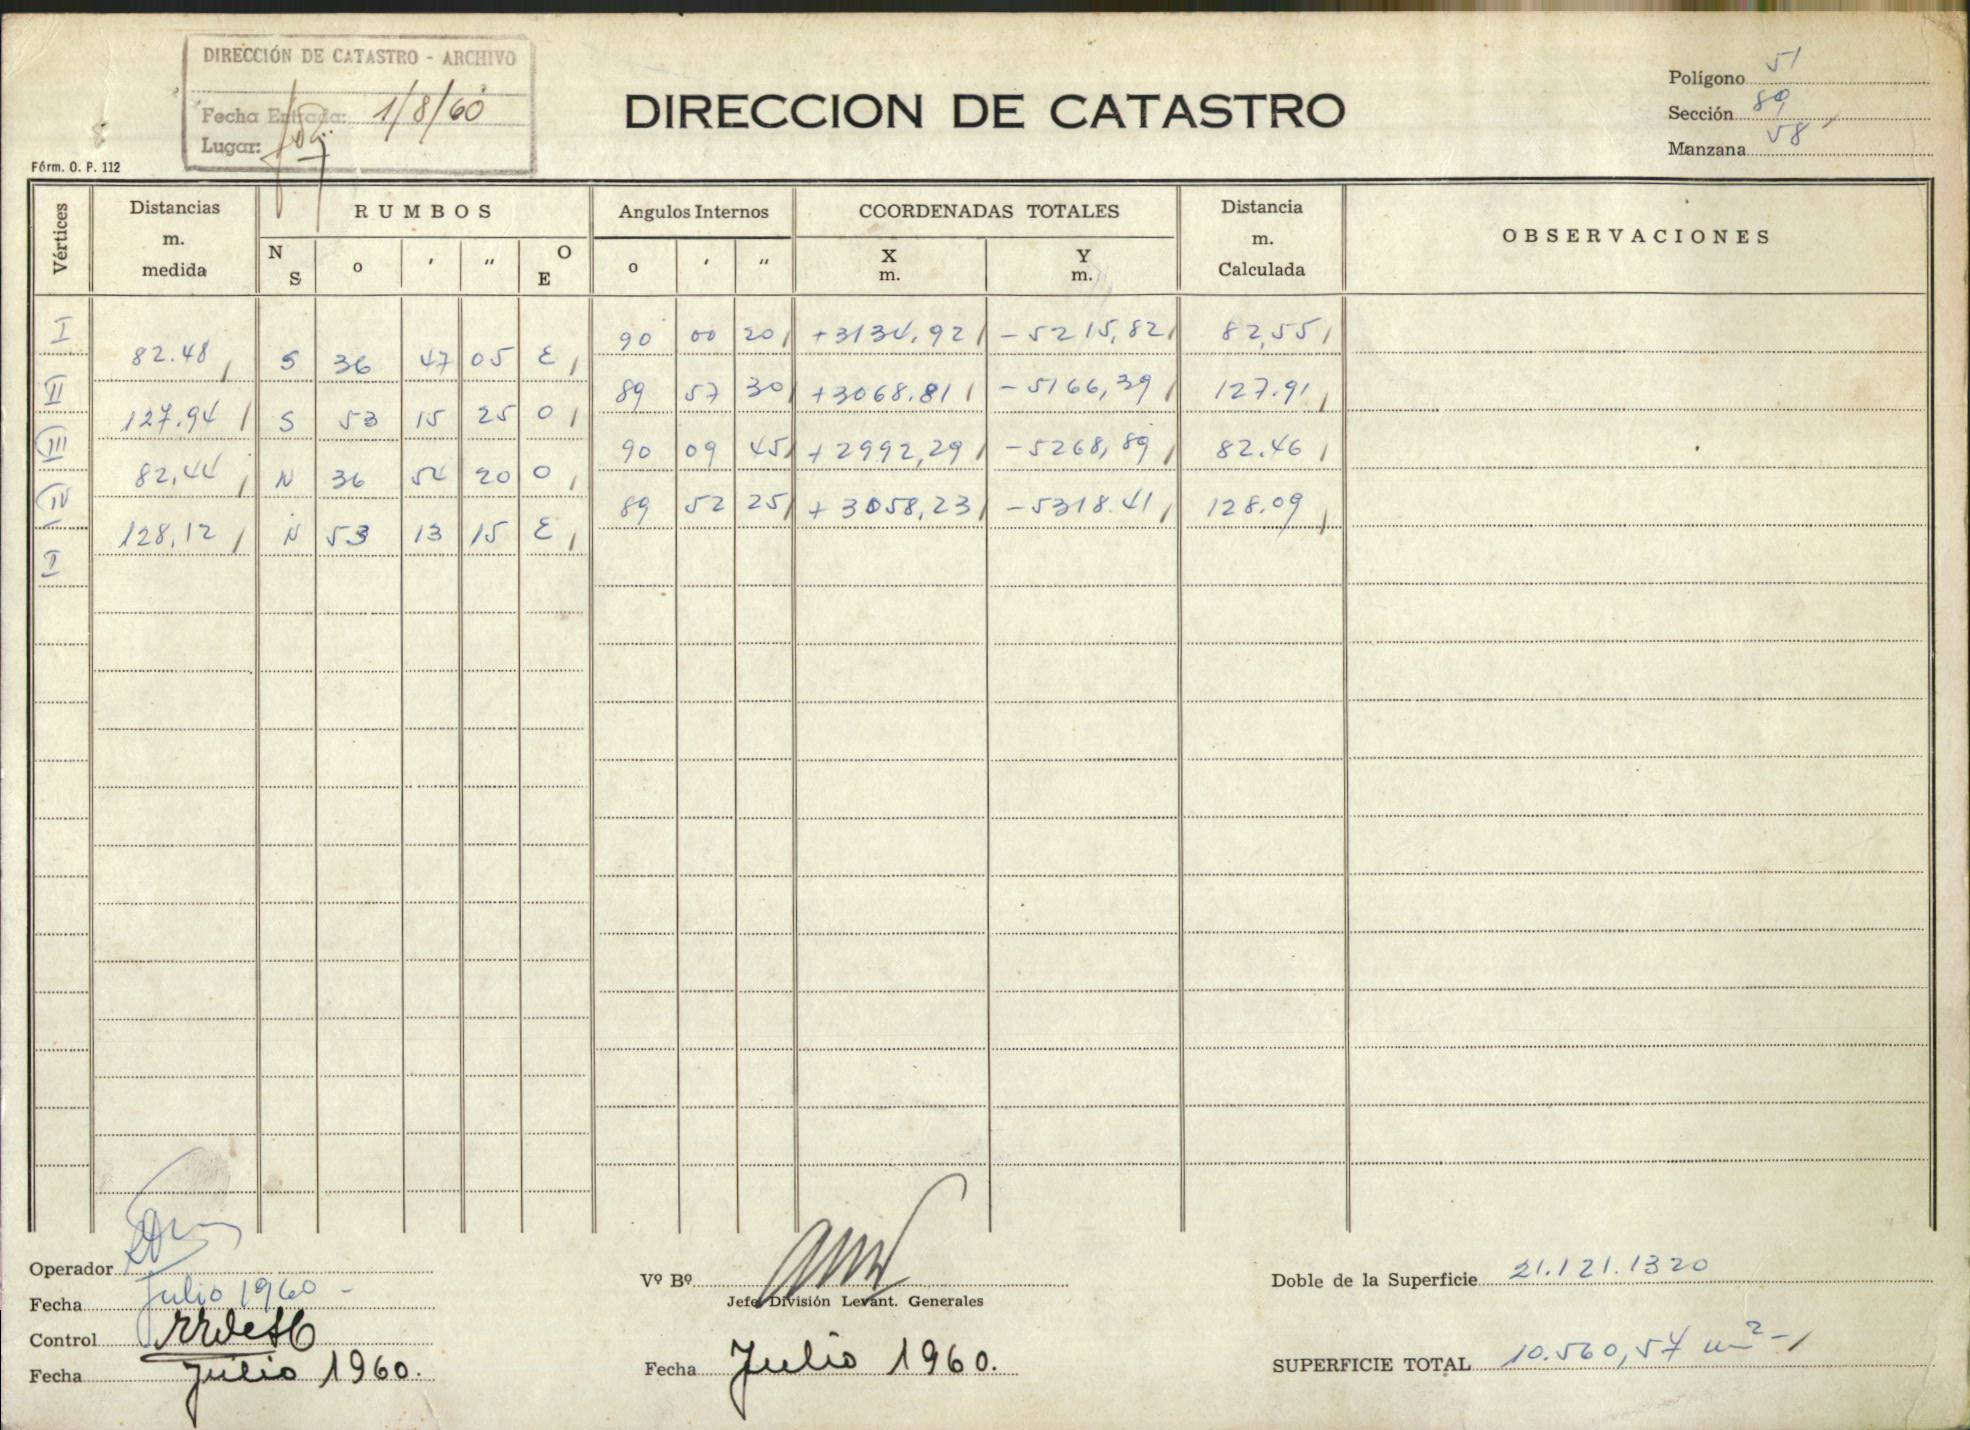 DIRECCIÓN DE CATASTRO - ARCHIVO
Fecha Entrada: 1/8/60
Lugar:
DIRECCION DE CATASTRO
Polígono 51
Sección 89
Manzana 58
Fórm. O. P. 112
Vértices
Distancias m. medida
RUMBOS
Angulos Internos
COORDENADAS TOTALES
Distancia m. Calculada
OBSERVACIONES
N S o ′ ″ O E
o ′ ″
X m.
Y m.
I 90 00 20 +3134,92 -5215,82 82,55
82.48 S 36 47 05 E
II 89 57 30 +3068.81 -5166,39 127.91
127.94 S 53 15 25 O
III 90 09 45 +2992,29 -5268,89 82.46
82,44 N 36 54 20 O
IV 89 52 25 +3058,23 -5318.41 128.09
128,12 N 53 13 15 E
I
Operador
Fecha Julio 1960-
Control
Fecha Julio 1960.
Vº Bº
Jefe División Levant. Generales
Fecha Julio 1960.
Doble de la Superficie 21.121.1320
SUPERFICIE TOTAL 10.560,57 m²-